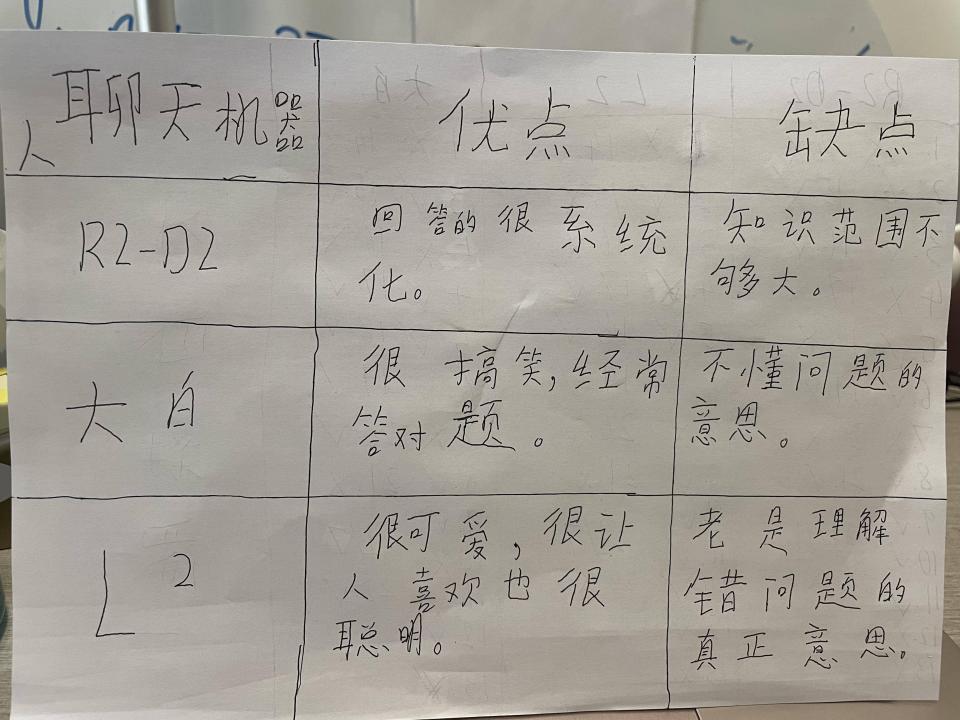 聊天机器人
优点
缺点
R2-D2
回答的很系统
化。
知识范围不
够大。
大白
很搞笑，经常
答对题。
不懂问题的
意思。
L2
很可爱，很让
人喜欢也很
聪明。
老是理解
错问题的
真正意思。